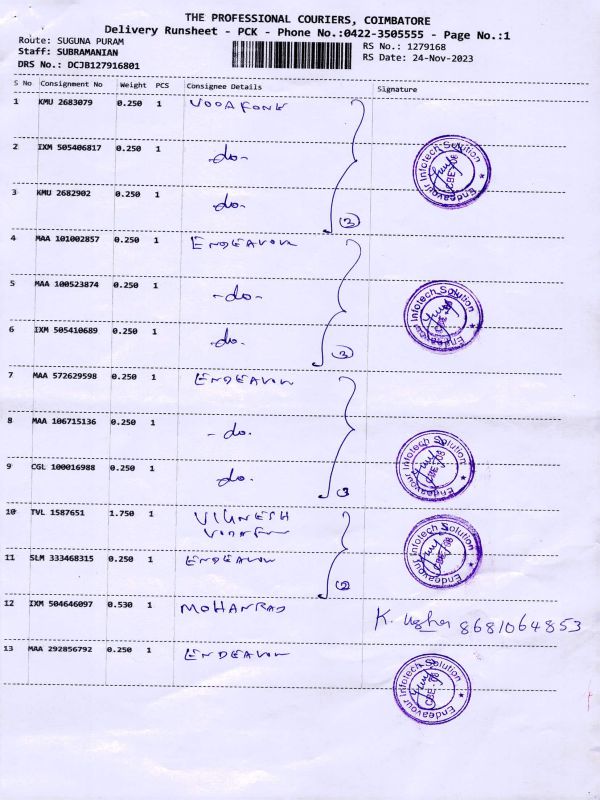 THE PROFESSIONAL COURIERS, COIMBATORE
Delivery Runsheet - PCK - Phone No.:0422-3505555 - Page No.:1
Route: SUGUNA PURAM
Staff: SUBRAMANIAN
DRS No.: DCJB127916801
RS No.: 1279168
RS Date: 24-Nov-2023
S No Consignment No Weight PCS Consignee Details Signature
1 KMU 2683079 0.250 1 VODAFONE
2 IXM 505406817 0.250 1 -do-
3 KMU 2682902 0.250 1 -do- (3)
Endeavour Infotech Solution * CBE-08
4 MAA 101002857 0.250 1 ENDEAVOUR
5 MAA 100523874 0.250 1 -do-
6 IXM 505410689 0.250 1 -do- (3)
Endeavour Infotech Solution * CBE-08
7 MAA 572629598 0.250 1 ENDEAVOUR
8 MAA 106715136 0.250 1 -do-
9 CGL 100016988 0.250 1 -do- (3)
Endeavour Infotech Solution * CBE-08
10 TVL 1587651 1.750 1 VIGNESH
VODAFONE
11 SLM 333468315 0.250 1 ENDEAVOUR (2)
Endeavour Infotech Solution * CBE-08
12 IXM 504646097 0.530 1 MOHANRAJ K. 8681064853
13 MAA 292856792 0.250 1 ENDEAVOUR
Endeavour Infotech Solution * CBE-08